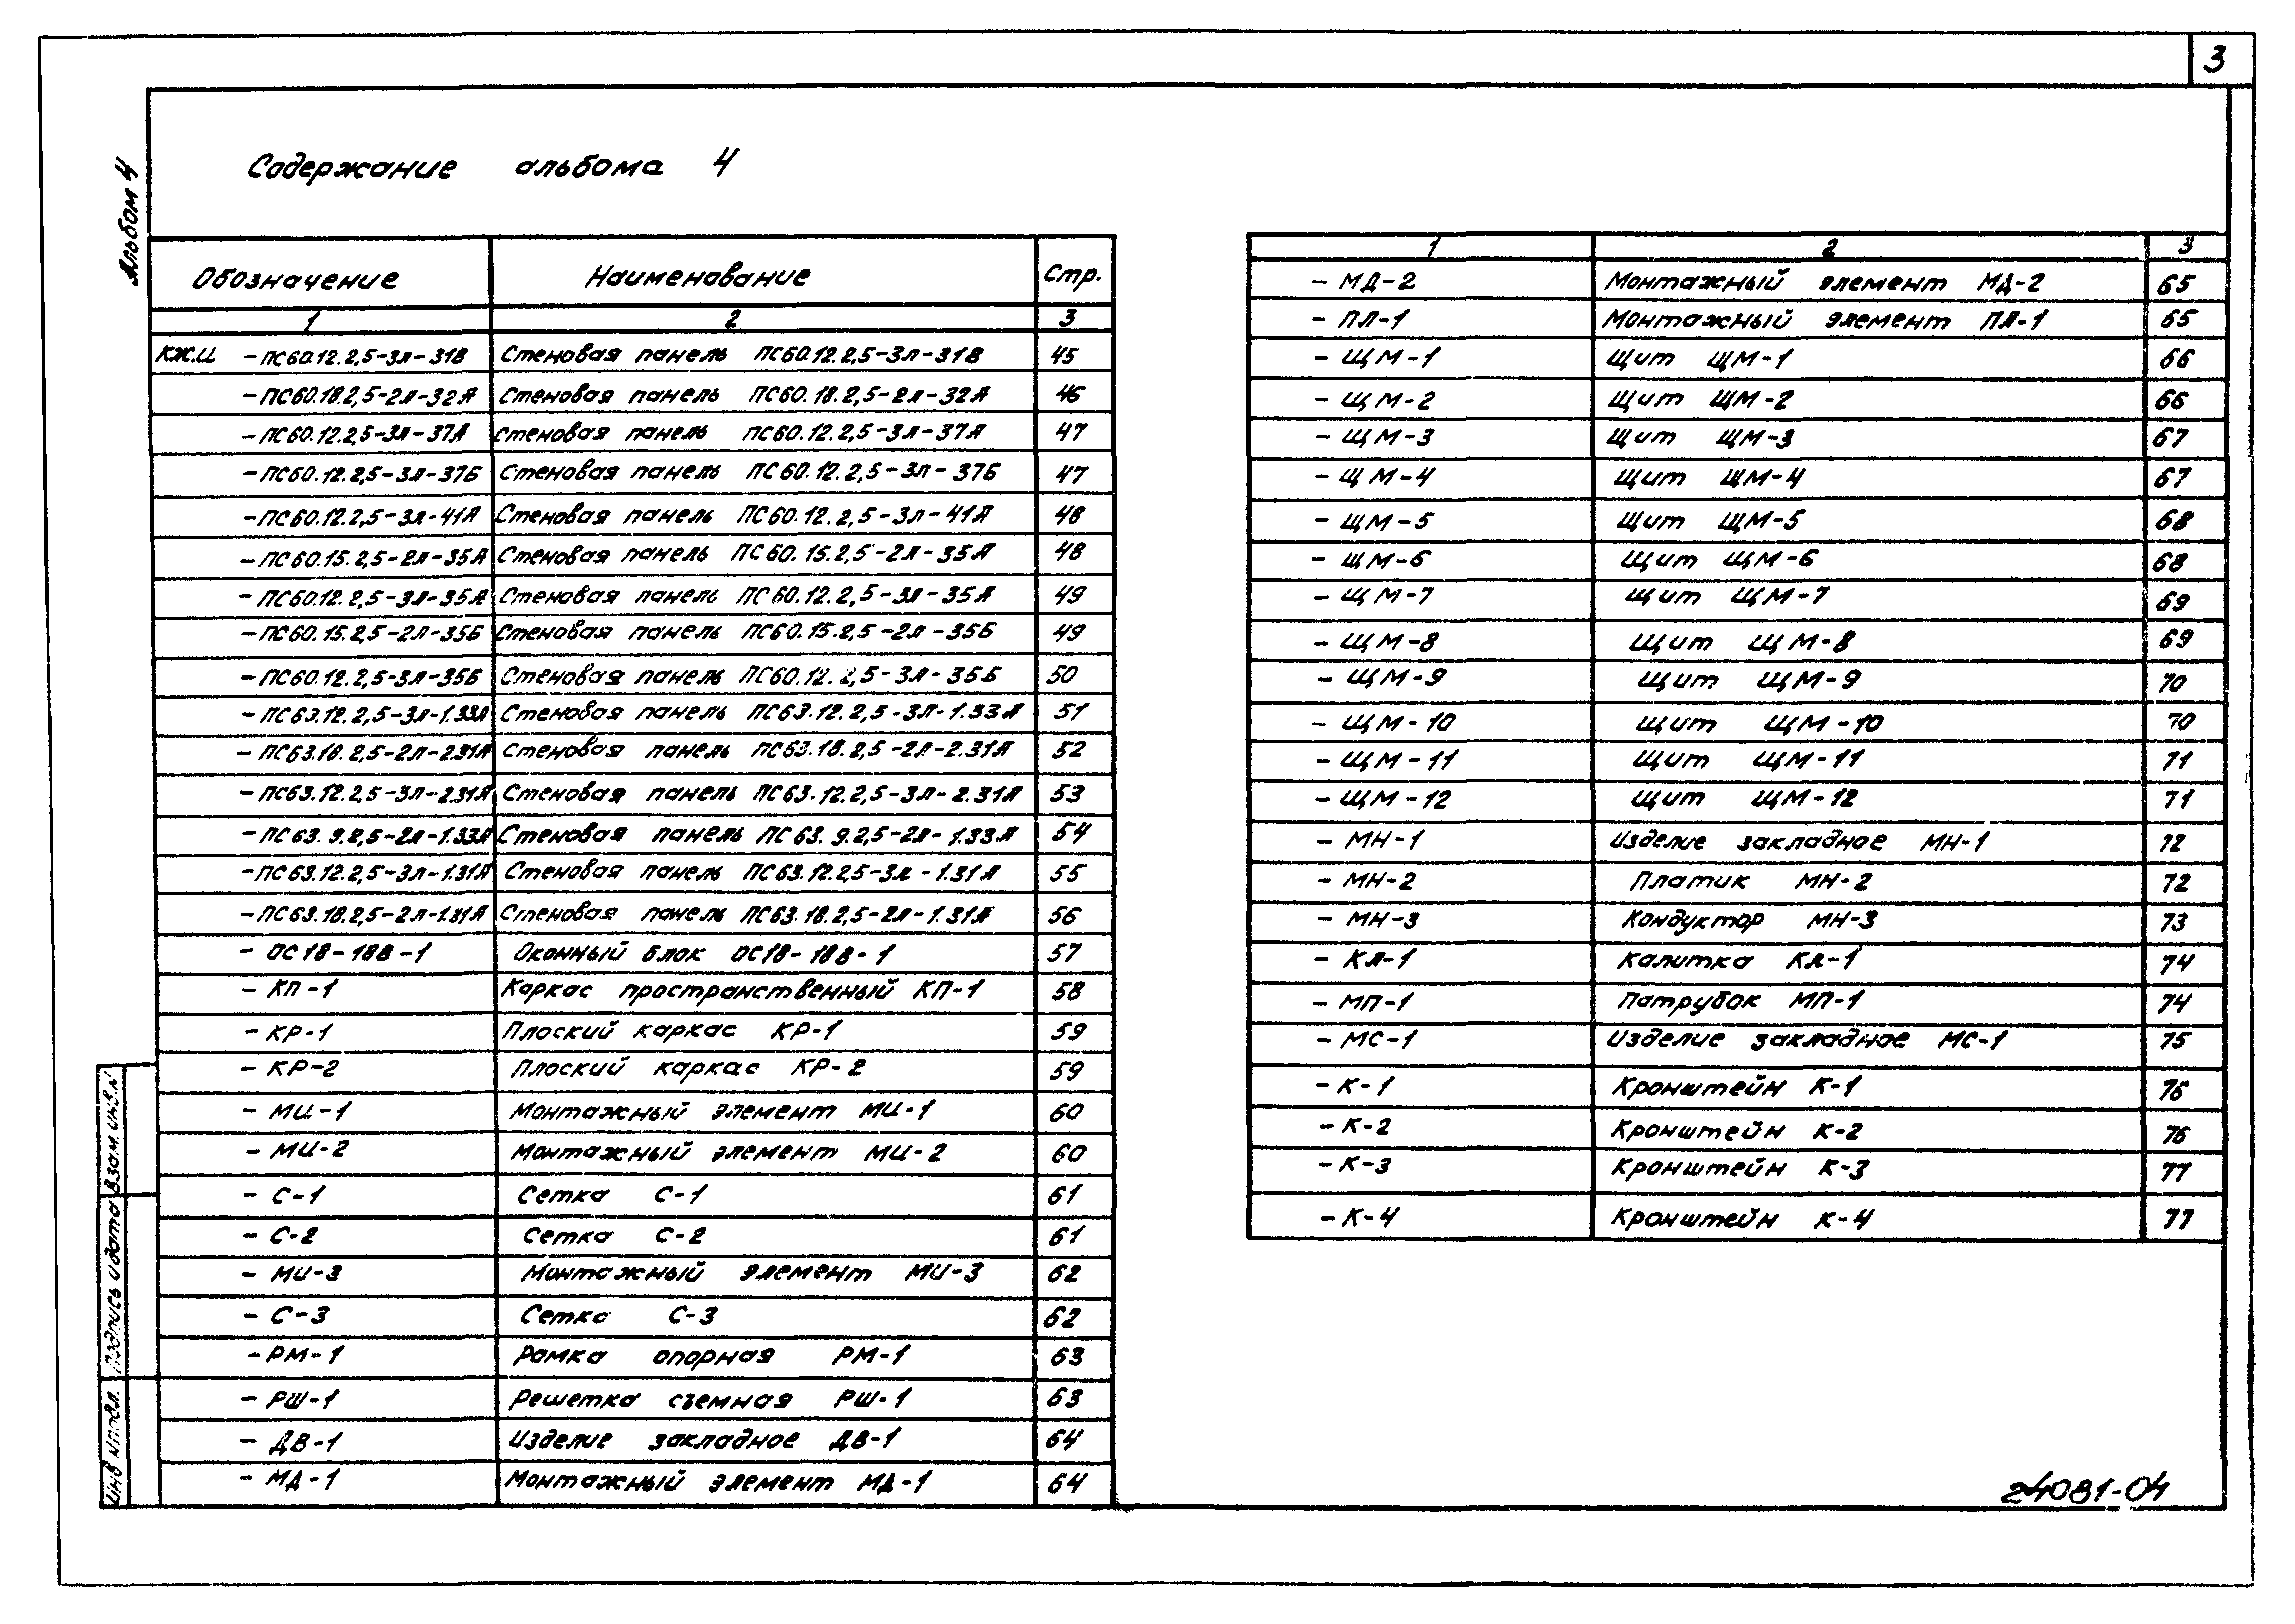 3
Альбом 4
Содержание альбома 4
Обозначение Наименование Стр.
1 2 3
КЖ.И -ПС60.12.2,5-3л-31В Стеновая панель ПС60.12.2,5-3л-31В 45
-ПС60.18.2,5-2л-32А Стеновая панель ПС60.18.2,5-2л-32А 46
-ПС60.12.2,5-3л-37А Стеновая панель ПС60.12.2,5-3л-37А 47
-ПС60.12.2,5-3л-37Б Стеновая панель ПС60.12.2,5-3л-37Б 47
-ПС60.12.2,5-3л-41А Стеновая панель ПС60.12.2,5-3л-41А 48
-ПС60.15.2,5-2л-35А Стеновая панель ПС60.15.2,5-2л-35А 48
-ПС60.12.2,5-3л-35А Стеновая панель ПС60.12.2,5-3л-35А 49
-ПС60.15.2,5-2л-35Б Стеновая панель ПС60.15.2,5-2л-35Б 49
-ПС60.12.2,5-3л-35Б Стеновая панель ПС60.12.2,5-3л-35Б 50
-ПС63.12.2,5-3л-1.33А Стеновая панель ПС63.12.2,5-3л-1.33А 51
-ПС63.18.2,5-2л-2.31А Стеновая панель ПС63.18.2,5-2л-2.31А 52
-ПС63.12.2,5-3л-2.31А Стеновая панель ПС63.12.2,5-3л-2.31А 53
-ПС63.9.2,5-2л-1.33А Стеновая панель ПС63.9.2,5-2л-1.33А 54
-ПС63.12.2,5-3л-1.31А Стеновая панель ПС63.12.2,5-3л-1.31А 55
-ПС63.18.2,5-2л-1.31А Стеновая панель ПС63.18.2,5-2л-1.31А 56
- ОС18-18В-1 Оконный блок ОС18-18В-1 57
- КП-1 Каркас пространственный КП-1 58
- КР-1 Плоский каркас КР-1 59
- КР-2 Плоский каркас КР-2 59
- МИ-1 Монтажный элемент МИ-1 60
- МИ-2 Монтажный элемент МИ-2 60
- С-1 Сетка С-1 61
- С-2 Сетка С-2 61
- МИ-3 Монтажный элемент МИ-3 62
- С-3 Сетка С-3 62
- РМ-1 Рамка опорная РМ-1 63
- РШ-1 Решетка съемная РШ-1 63
- ДВ-1 Изделие закладное ДВ-1 64
- МД-1 Монтажный элемент МД-1 64
1 2 3
- МД-2 Монтажный элемент МД-2 65
- ПЛ-1 Монтажный элемент ПЛ-1 65
- ЩМ-1 Щит ЩМ-1 66
- ЩМ-2 Щит ЩМ-2 66
- ЩМ-3 Щит ЩМ-3 67
- ЩМ-4 Щит ЩМ-4 67
- ЩМ-5 Щит ЩМ-5 68
- ЩМ-6 Щит ЩМ-6 68
- ЩМ-7 Щит ЩМ-7 69
- ЩМ-8 Щит ЩМ-8 69
- ЩМ-9 Щит ЩМ-9 70
- ЩМ-10 Щит ЩМ-10 70
- ЩМ-11 Щит ЩМ-11 71
- ЩМ-12 Щит ЩМ-12 71
- МН-1 Изделие закладное МН-1 72
- МН-2 Платик МН-2 72
- МН-3 Кондуктор МН-3 73
- КЛ-1 Калитка КЛ-1 74
- МП-1 Патрубок МП-1 74
- МС-1 Изделие закладное МС-1 75
- К-1 Кронштейн К-1 76
- К-2 Кронштейн К-2 76
- К-3 Кронштейн К-3 77
- К-4 Кронштейн К-4 77
Взам. инв. №
Подпись и дата
Инв № подл.
24081-04